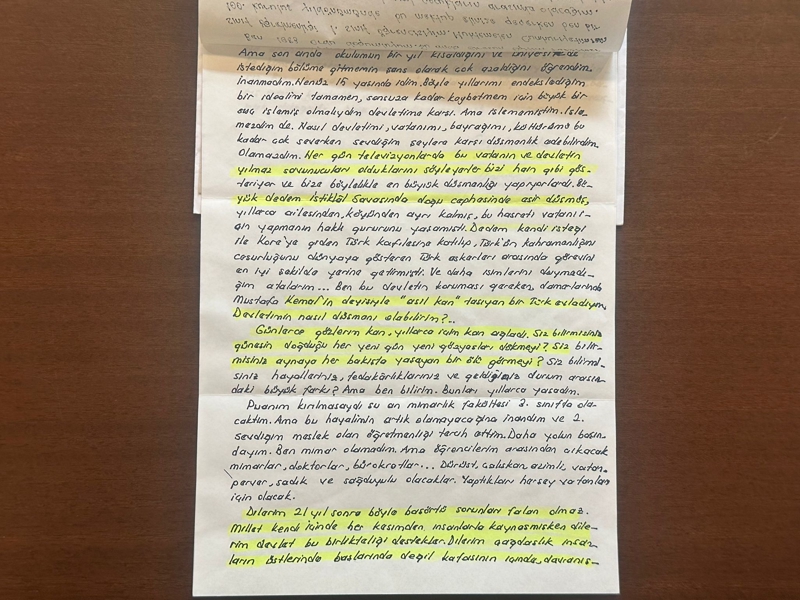 Ama son anda okulumun bir yıl kısaldığını ve üniversitede
istediğim bölüme gitmemin şans olarak çok azaldığını öğrendim.
İnanmadım. Henüz 15 yaşında idim. Böyle yıllarımı endekslediğim
bir idealimi tamamen, sonsuza kadar kaybetmem için büyük bir
suç işlemiş olmalıydım devletime karşı. Ama işlememiştim. İşle-
mezdim de. Nasıl devletimi, vatanımı, bayrağımı, kültürümü bu
kadar çok severken sevdiğim şeylere karşı düşmanlık edebilirdim.
Olamazdım. Her gün televizyonlarda bu vatanın ve devletin
yılmaz savunucuları olduklarını söyleyenler bizi hain gibi gös-
teriyor ve bize böylelikle en büyük düşmanlığı yapıyorlardı. Bü-
yük dedem İstiklâl Savaşında doğu cephesinde esir düşmüş,
yıllarca ailesinden, köyünden ayrı kalmış, bu hasreti vatanı i-
çin yapmanın haklı gururunu yaşamıştı. Dedem kendi isteği
ile Kore'ye giden Türk kafilesine katılıp, Türk'ün kahramanlığını
cesurluğunu dünyaya gösteren Türk askerleri arasında görevini
en iyi şekilde yerine getirmişti. Ve daha isimlerini duymadı-
ğım atalarım... Ben bu devletin koruması gereken, damarlarında
Mustafa Kemal'in deyişiyle "asil kan" taşıyan bir Türk evladıyım.
Devletimin nasıl düşmanı olabilirim?..
Günlerce gözlerim kan, yıllarca içim kan ağladı. Siz bilirmisiniz
güneşin doğduğu her yeni gün yeni gözyaşlar dökmeyi? Siz bilir-
misiniz aynaya her bakışta yaşayan bir ölü görmeyi? Siz bilirmi-
siniz hayalleriniz, fedakârlıklarınız ve geldiğiniz durum arasın-
daki büyük farkı? Ama ben bilirim. Bunları yıllarca yaşadım.
Puanım kırılmasaydı şu an mimarlık fakültesi 2. sınıfta ola-
caktım. Ama bu hayalimin artık olamayacağına inandım ve 2.
sevdiğim meslek olan öğretmenliği tercih ettim. Daha yolun başın-
dayım. Ben mimar olamadım. Ama öğrencilerim arasından çıkacak
mimarlar, doktorlar, bürokratlar... Dürüst, çalışkan, azimli, vatan-
perver, sadık ve sağduyulu olacaklar. Yaptıkları herşey vatanları
için olacak.
Dilerim 21 yıl sonra böyle başörtü sorunları falan olmaz.
Millet kendi içinde her kesimden insanlarla kaynaşmışken dile-
rim devlet bu birlikteliği destekler. Dilerim çağdaşlık insan-
ların üstlerinde başlarında değil kafasının içinde, davranış-